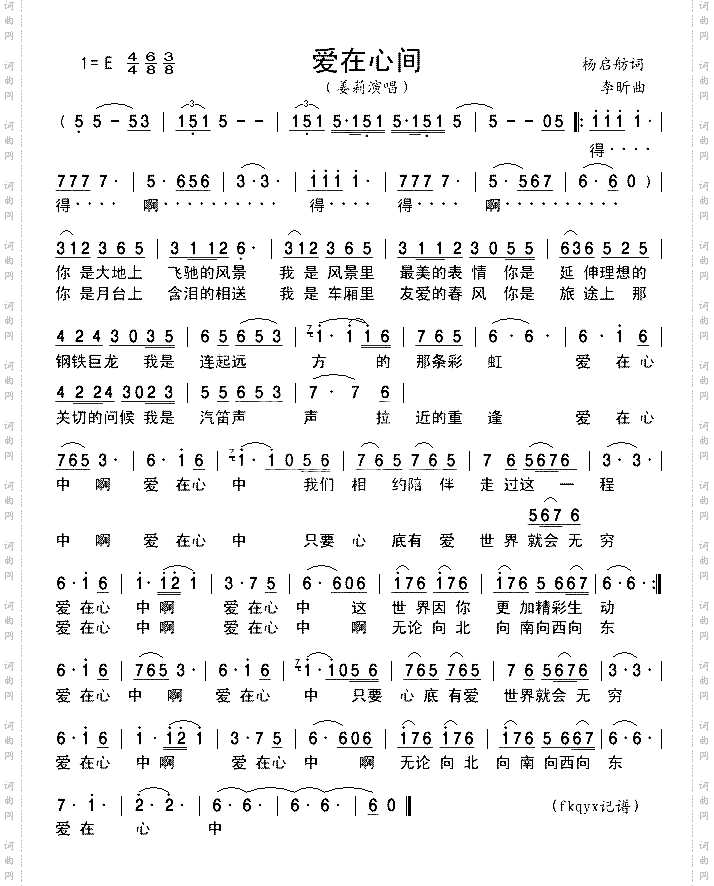 爱在心间
1=E 4/4 6/8 3/8
杨启舫词
(姜莉演唱)
李昕曲
(5 5--53 | 151 5-- | 151 5·151 5·151 5 | 5--05 ‖: iii i· |
得····
777 7· | 5·656 | 3·3· | iii i· | 777 7· | 5·567 | 6·60) |
得···· 啊·········· 得···· 得···· 啊··········
312 365 | 3112 6· | 312 365 | 3112 3055 | 636 525 |
你是大地上 飞驰的风景 我是风景里 最美的表情 你是 延伸理想的
你是月台上 含泪的相送 我是车厢里 友爱的春风 你是 旅途上那
424 3035 | 65 653 | i·i· | i·i6 | 765 | 6·6· | 6·i6 |
钢铁巨龙 我是 连起远 方 的 那条彩 虹 爱在心
4224 3023 | 55 653 | 7·7 6 |
关切的问候 我是 汽笛声 声 拉 近的重逢 爱在心
765 3· | 6·i6 | i·i056 | 765 765 | 76 5676 | 3·3· |
中啊 爱在心 中 我们 相 约陪伴 走过这一程
567 6
中啊 爱在心 中 只要 心底有爱 世界就会无穷
6·i6 | i·i2i | 3·75 | 6·606 | i76 i76 | i76 5667 | 6·6· :‖
爱在心 中啊 爱在心 中 这 世界因你 更加精彩生动
爱在心 中啊 爱在心 中 啊 无论向北 向南向西向东
6·i6 | 765 3· | 6·i6 | i·i056 | 765 765 | 765 5676 | 3·3· |
爱在心 中啊 爱在心 中 只要 心底有爱 世界就会无穷
6·i6 | i·i2 i | 3·75 | 6·606 | i76 i76 | i76 5667 | 6·6· |
爱在心 中啊 爱在心 中 啊 无论向北 向南向西向东
7·i· | 2·2· | 6·6· | 6·6· | 60 ‖
(fkqyx记谱)
爱在 心 中
词曲网